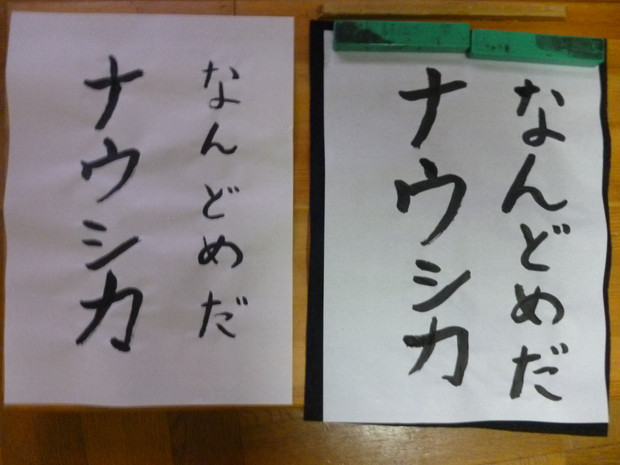 なんどめだ
ナウシカ
なんどめだ
ナウシカ